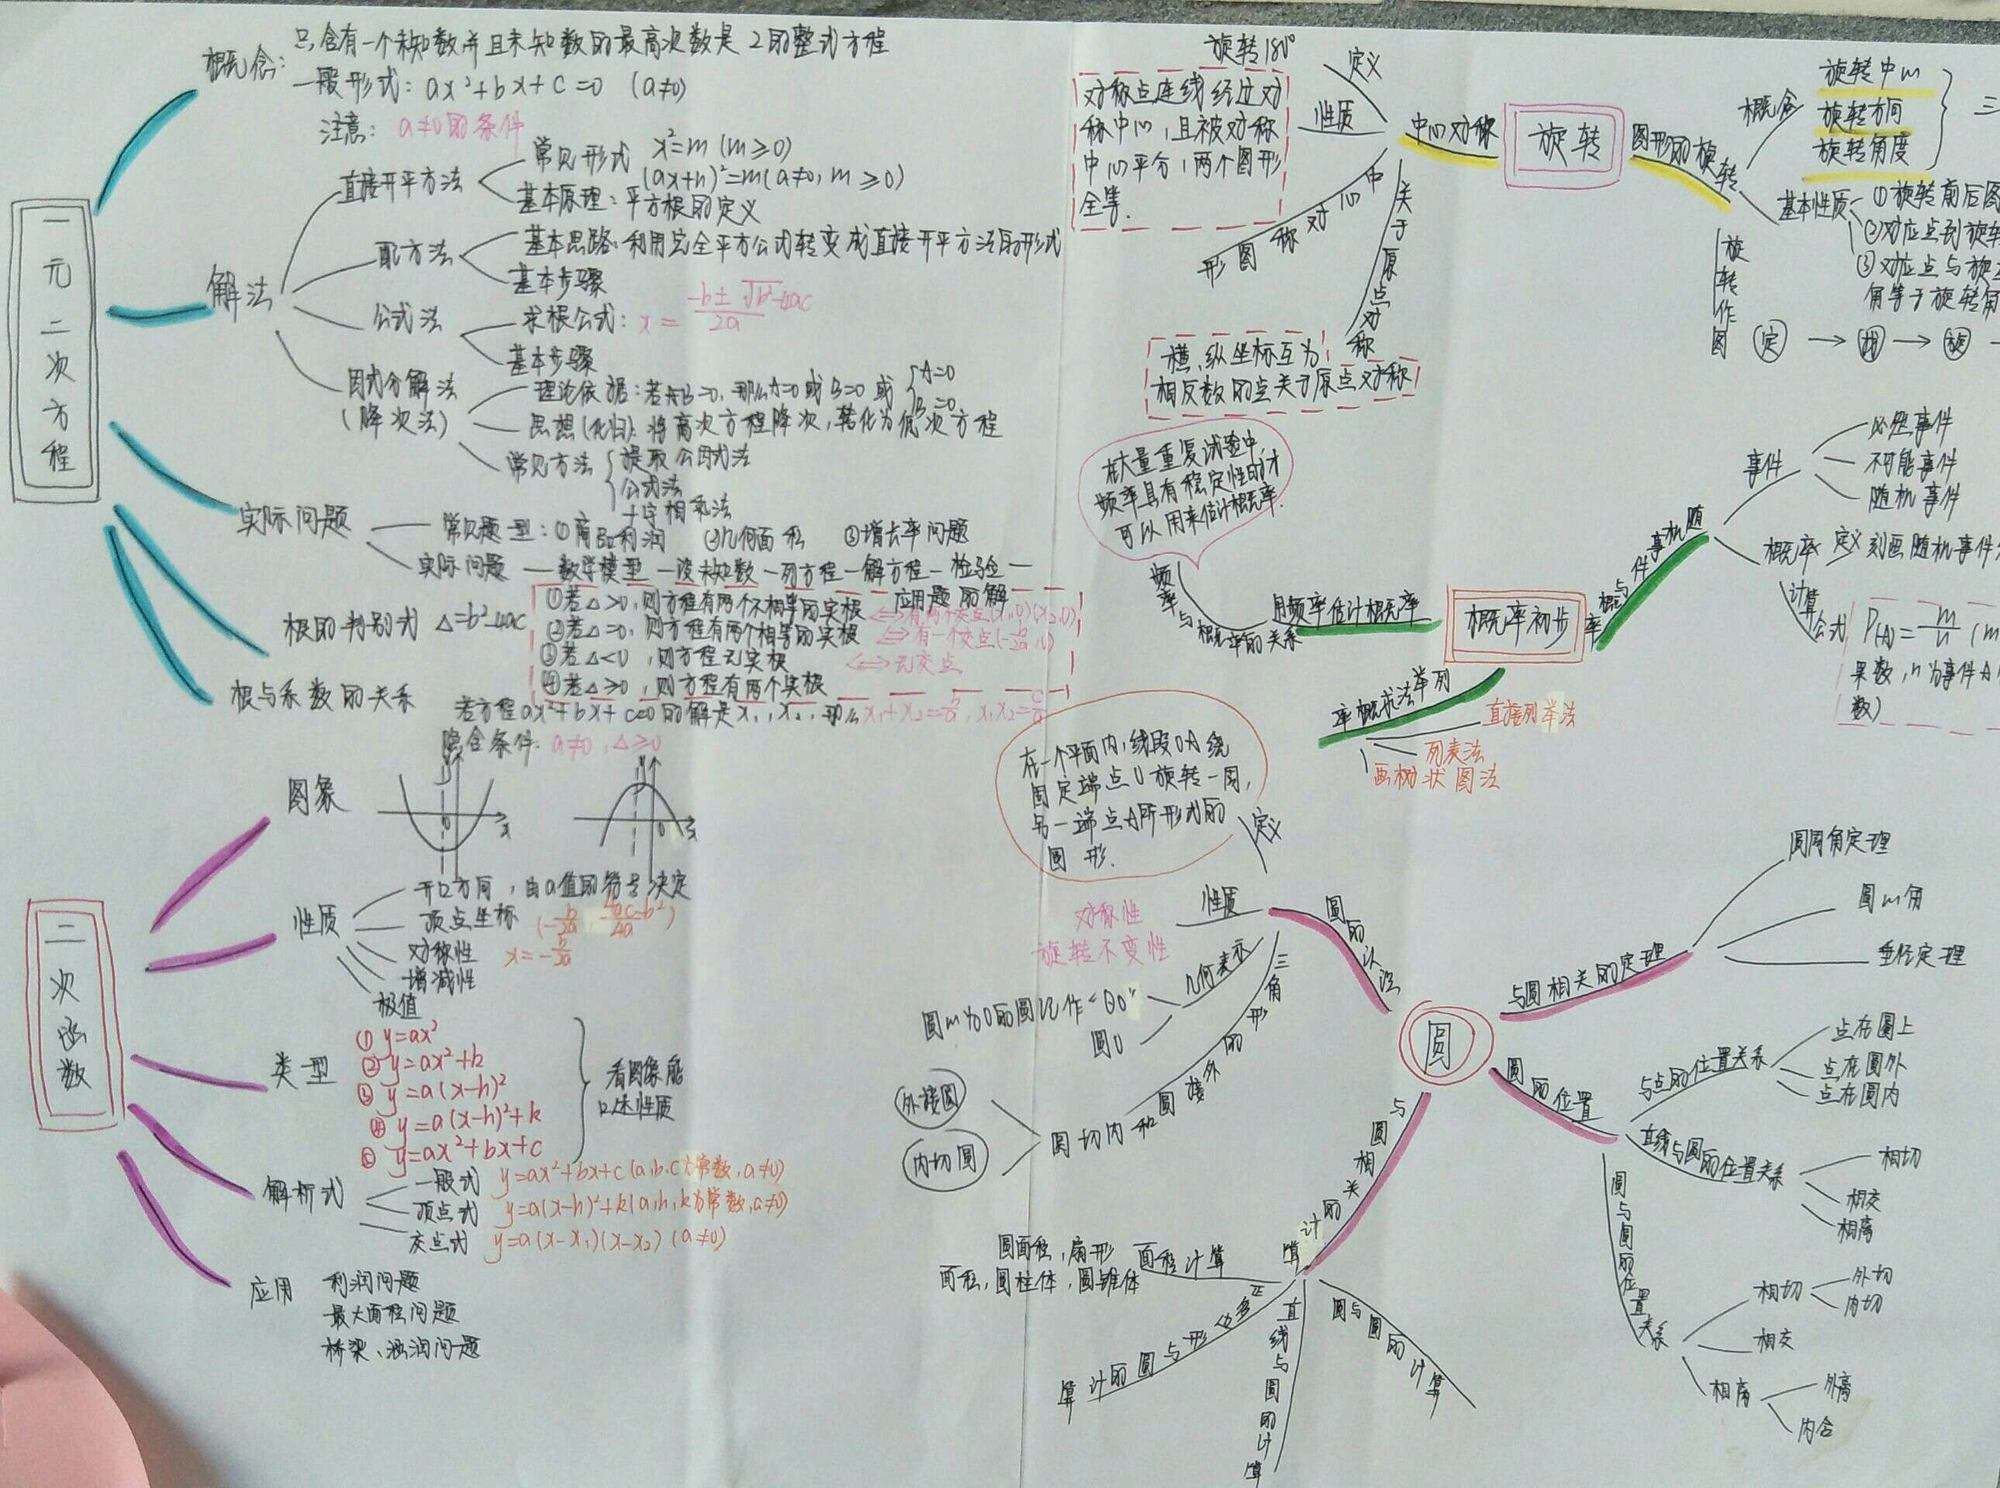 一元二次方程
概念：
只含有一个未知数并且未知数的最高次数是2的整式方程
一般形式：ax²+bx+c=0 (a≠0)
注意：a≠0的条件
解法
直接开平方法
常见形式 x²=m (m≥0)
(ax+n)²=m(a≠0, m≥0)
基本原理：平方根的定义
配方法
基本思路：利用完全平方公式转变成直接开平方法的形式
基本步骤
公式法
求根公式：x=
-b±√b²-4ac
2a
基本步骤
因式分解法
(降次法)
理论依据：若AB=0，那么A=0或B=0或{A=0
B=0
思想(化归)：将高次方程降次，转化为低次方程
常见方法
提取公因式法
公式法
十字相乘法
实际问题
常见题型：①商品利润 ②几何面积 ③增长率问题
实际问题—数学模型—设未知数—列方程—解方程—检验—
应用题的解
根的判别式 △=b²-4ac
①若△>0，则方程有两个不相等的实根
②若△=0，则方程有两个相等的实根
③若△<0，则方程无实根 ⇔无交点
④若△≥0，则方程有两个实根
根与系数的关系
若方程ax²+bx+c=0的解是x₁，x₂，那么x₁+x₂=-b/a，x₁x₂=c/a
隐含条件：a≠0，△≥0
二次函数
图象
y
0
x
y
0
x
性质
开口方向，由a值的符号决定
顶点坐标 (-b/2a, 4ac-b²/4a)
对称性 x=-b/2a
增减性
极值
类型
① y=ax²
② y=ax²+k
③ y=a(x-h)²
④ y=a(x-h)²+k
⑤ y=ax²+bx+c
看图象能
口述性质
解析式
一般式 y=ax²+bx+c(a,b,c为常数,a≠0)
顶点式 y=a(x-h)²+k(a,h,k为常数,a≠0)
交点式 y=a(x-x₁)(x-x₂) (a≠0)
应用
利润问题
最大面积问题
桥梁、涵洞问题
旋转
中心对称
定义
旋转180°
性质
对称点连线经过对
称中心，且被对称
中心平分，两个图形
全等.
中心对称图形
关于原点对称
横，纵坐标互为
相反数的点关于原点对称
图形的旋转
概念
旋转中心
旋转方向
旋转角度
三
基本性质
①旋转前后图
②对应点到旋转
③对应点与旋
角等于旋转角
旋转作图
定→找→旋
概率初步
随机事件与概率
事件
必然事件
不可能事件
随机事件
概率
定义 刻画随机事件
计算公式
P(A)=m/n (m
果数，n为事件A
数)
用频率估计概率
频率与概率的关系
在大量重复试验中，
频率具有稳定性时才
可以用来估计概率.
列举法求概率
直接列举法
列表法
画树状图法
圆
圆的认识
定义
在一个平面内，线段OA绕
固定端点O旋转一周，
另一端点A所形成的
图形.
性质
对称性
旋转不变性
几何表示
圆心为O的圆记作“⊙O”
圆O
三角形的外接圆和内切圆
外接圆
内切圆
与圆相关的定理
圆周角定理
圆心角
垂径定理
圆的位置
与点的位置关系
点在圆上
点在圆外
点在圆内
直线与圆的位置关系
相切
相交
相离
圆与圆的位置关系
相切
外切
内切
相交
相离
外离
内含
与圆相关的计算
面积计算
圆面积，扇形
面积，圆柱体，圆锥体
正多边形与圆的计算
直线与圆的计算
圆与圆的计算